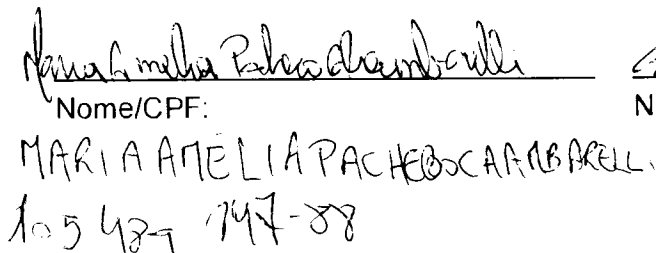 Maria Amelia Pacheco Chambarelli
Nome/CPF:
N
MARIA AMELIA PACHECO CHAMBARELLI
105 489 747-88